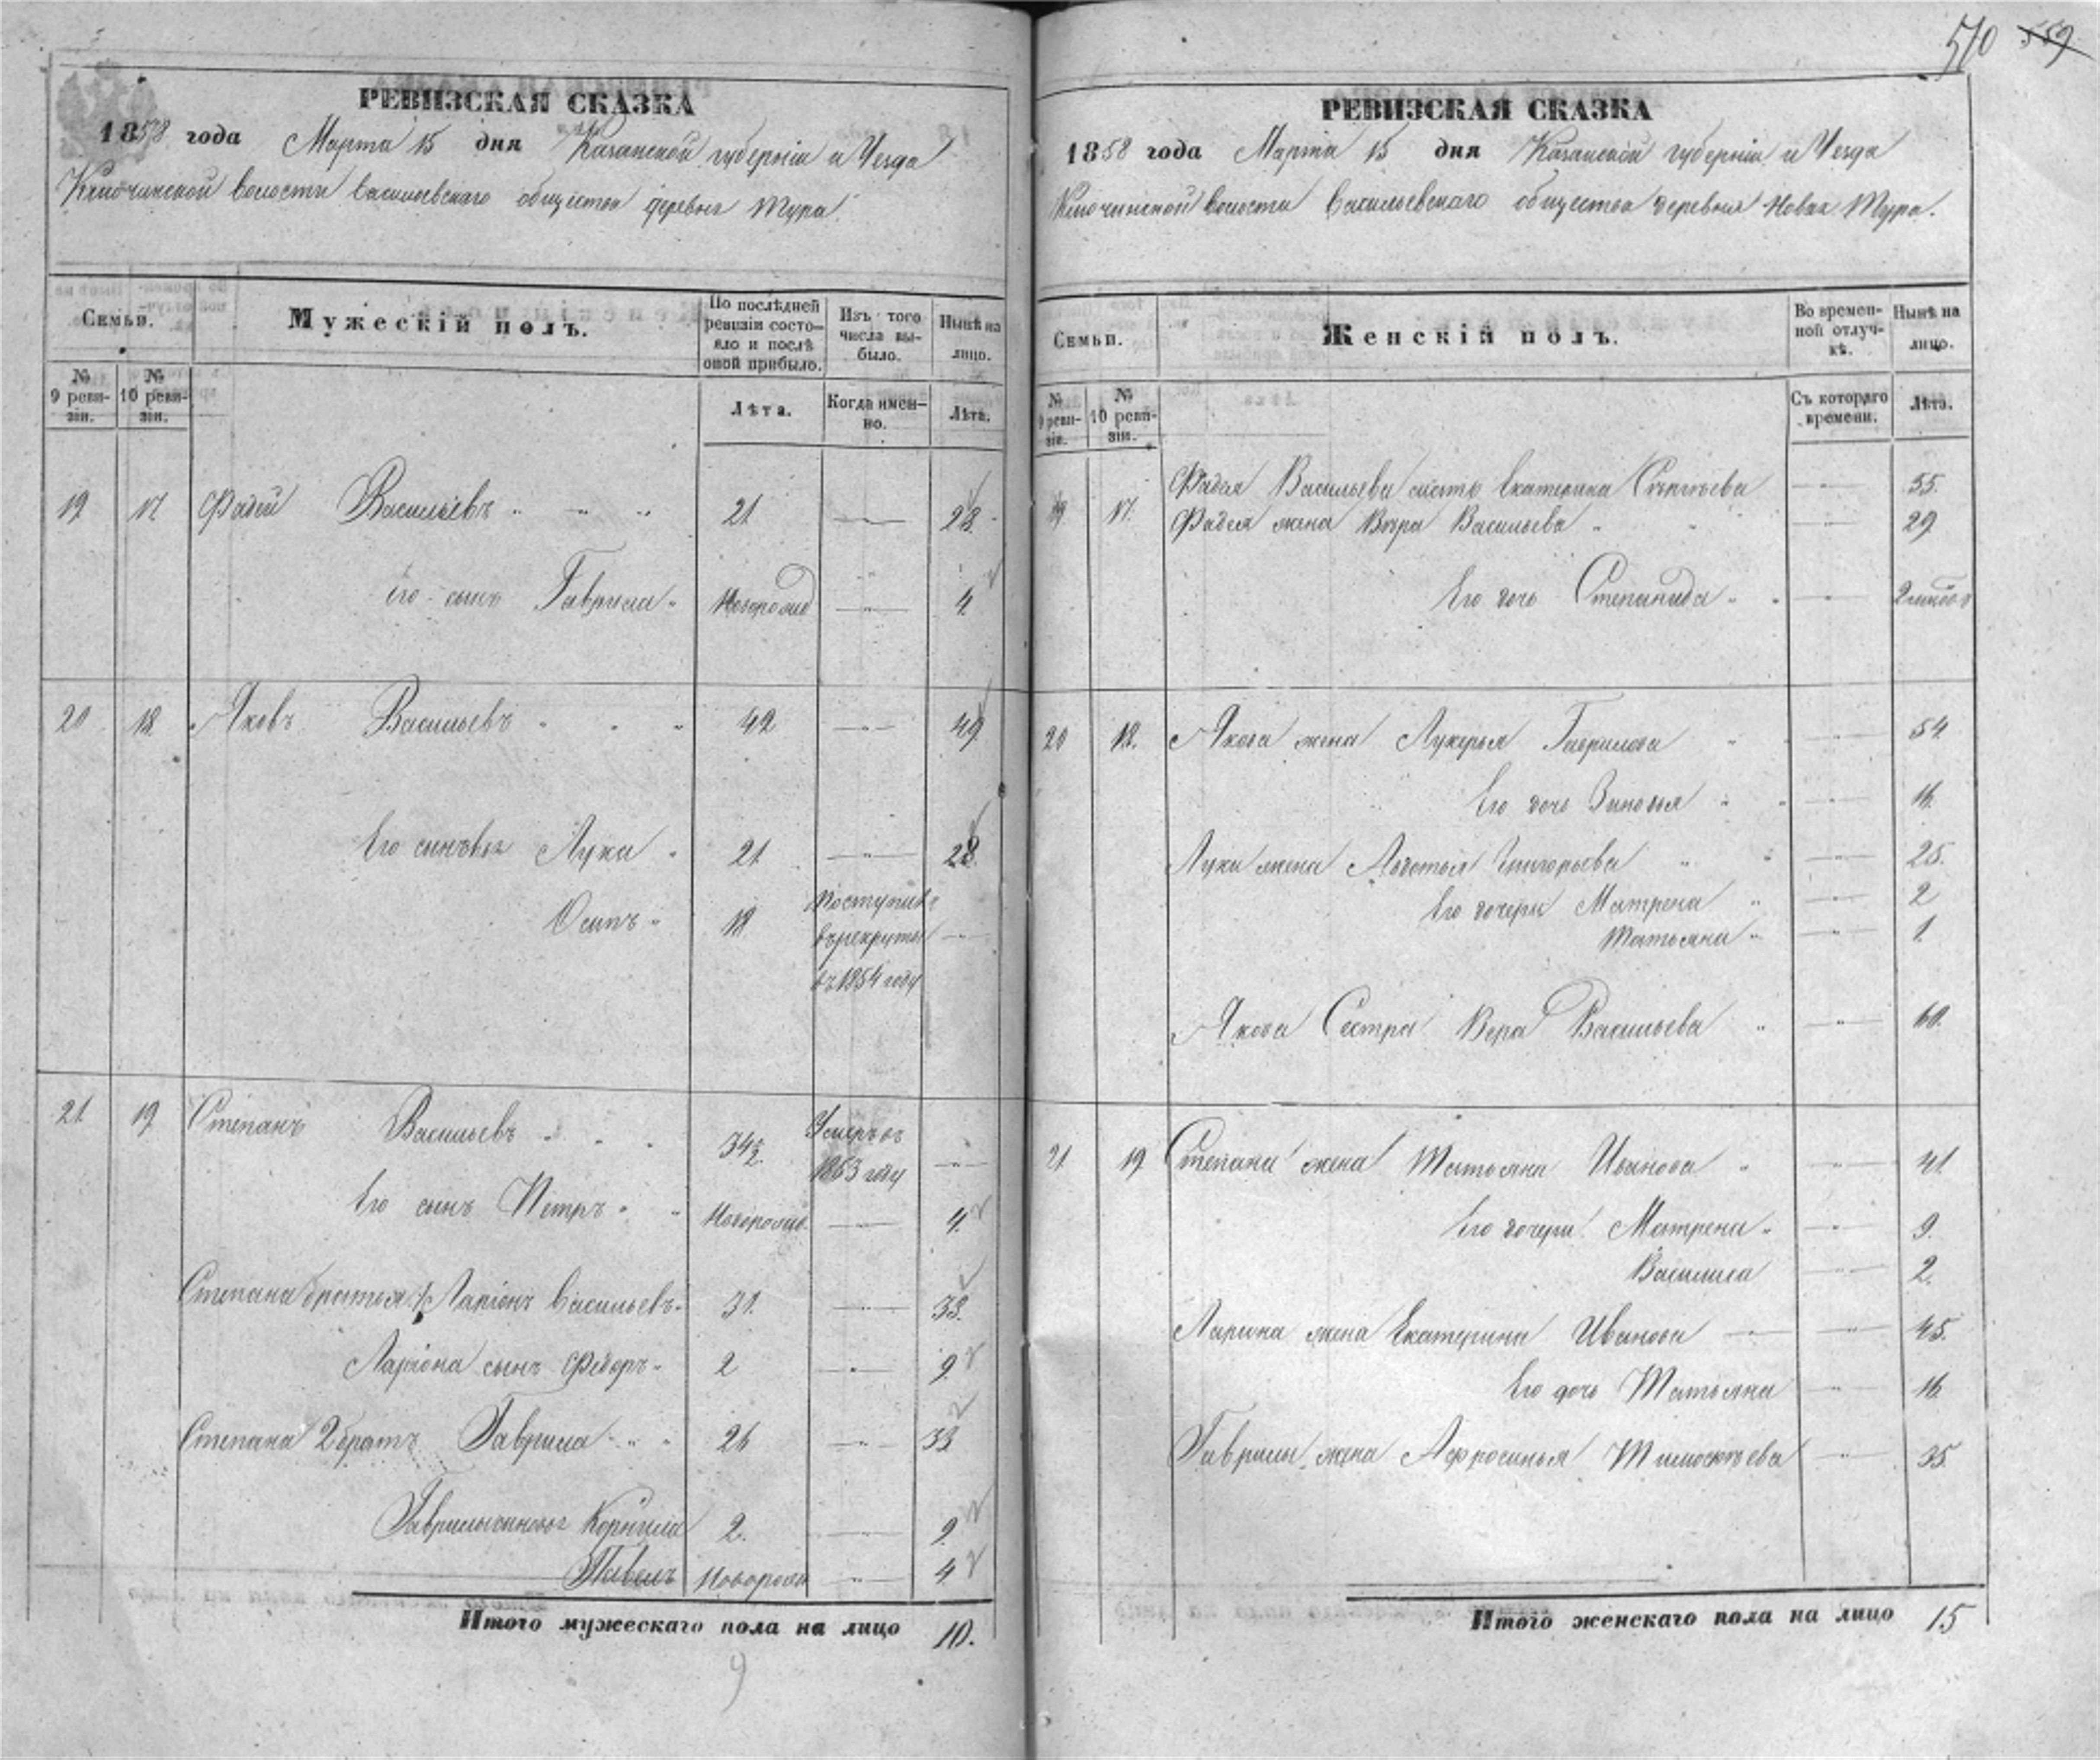 510 559
РЕВИЗСКАЯ СКАЗКА
1858 года Марта 15 дня Казанской губерніи и Уезда
Ключинской волости Васильевскаго общества деревня Тура.
Семьи.
Мужескій полъ.
По послѣдней ревизіи состояло и послѣ оной прибыло.
Изъ того числа выбыло.
Нынѣ на лицо.
№ 9 ревизіи.
№ 10 ревизіи.
Лѣта.
Когда именно.
Лѣта.
19 17 Фадей Васильевъ 21 28
Его сынъ Гаврила Новорожд 4
20 18 Яковъ Васильевъ 42 49
Его сыновья Лука 21 28
Осипъ 18 поступилъ
въ рекруты
въ 1854 году
21 19 Степанъ Васильевъ 34½ Умеръ въ
1853 году
Его сынъ Петръ Новорожд. 4
Степана братья 1/ Ларіонъ Васильевъ 31 38
Ларіона сынъ Федоръ 2 9
Степана 2 братъ Гаврила 26 33
Гаврилы сыновья Корнила 2 9
Павелъ Новорожд 4
Итого мужескаго пола на лицо 10.
9
РЕВИЗСКАЯ СКАЗКА
1858 года Марта 15 дня Казанской губерніи и Уезда
Ключинской волости Васильевскаго общества деревня Новая Тура.
Семьи.
Женскій полъ.
Во временной отлучкѣ.
Нынѣ на лицо.
№ 9 ревизіи.
№ 10 ревизіи.
Съ котораго времени.
Лѣта.
19 17. Фадея Васильева мать Екатерина 55.
Фадея жена Вѣра Васильева 29
Его дочь Степанида
20 18. Якова жена Лукерья Гаврилова 54
Его дочь Зиновья 16.
Луки жена Авдотья Григорьева 25.
Его дочери Матрена 2
Татьяна 1.
Якова Сестра Вера Васильева 60.
21 19 Степана жена Татьяна Иванова 41
Его дочери Матрена 9.
Василиса 2.
Лариона жена Екатерина Иванова 45.
Его дочь Татьяна 16
Гаврилы жена Афросинья Тимофѣева 35.
Итого женскаго пола на лицо 15